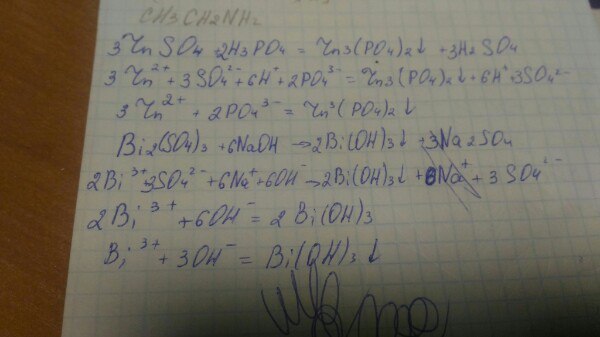 CH3CH2NH2
3ZnSO4 + 2H3PO4 = Zn3(PO4)2↓ + 3H2SO4
3Zn²⁺ + 3SO4²⁻ + 6H⁺ + 2PO4³⁻ = Zn3(PO4)2↓ + 6H⁺ + 3SO4²⁻
3Zn²⁺ + 2PO4³⁻ = Zn3(PO4)2↓
Bi2(SO4)3 + 6NaOH → 2Bi(OH)3↓ + 3Na2SO4
2Bi³⁺ 3SO4²⁻ + 6Na⁺ + 6OH⁻ → 2Bi(OH)3↓ + 6Na⁺ + 3SO4²⁻
2Bi³⁺ + 6OH⁻ = 2Bi(OH)3
Bi³⁺ + 3OH⁻ = Bi(OH)3↓